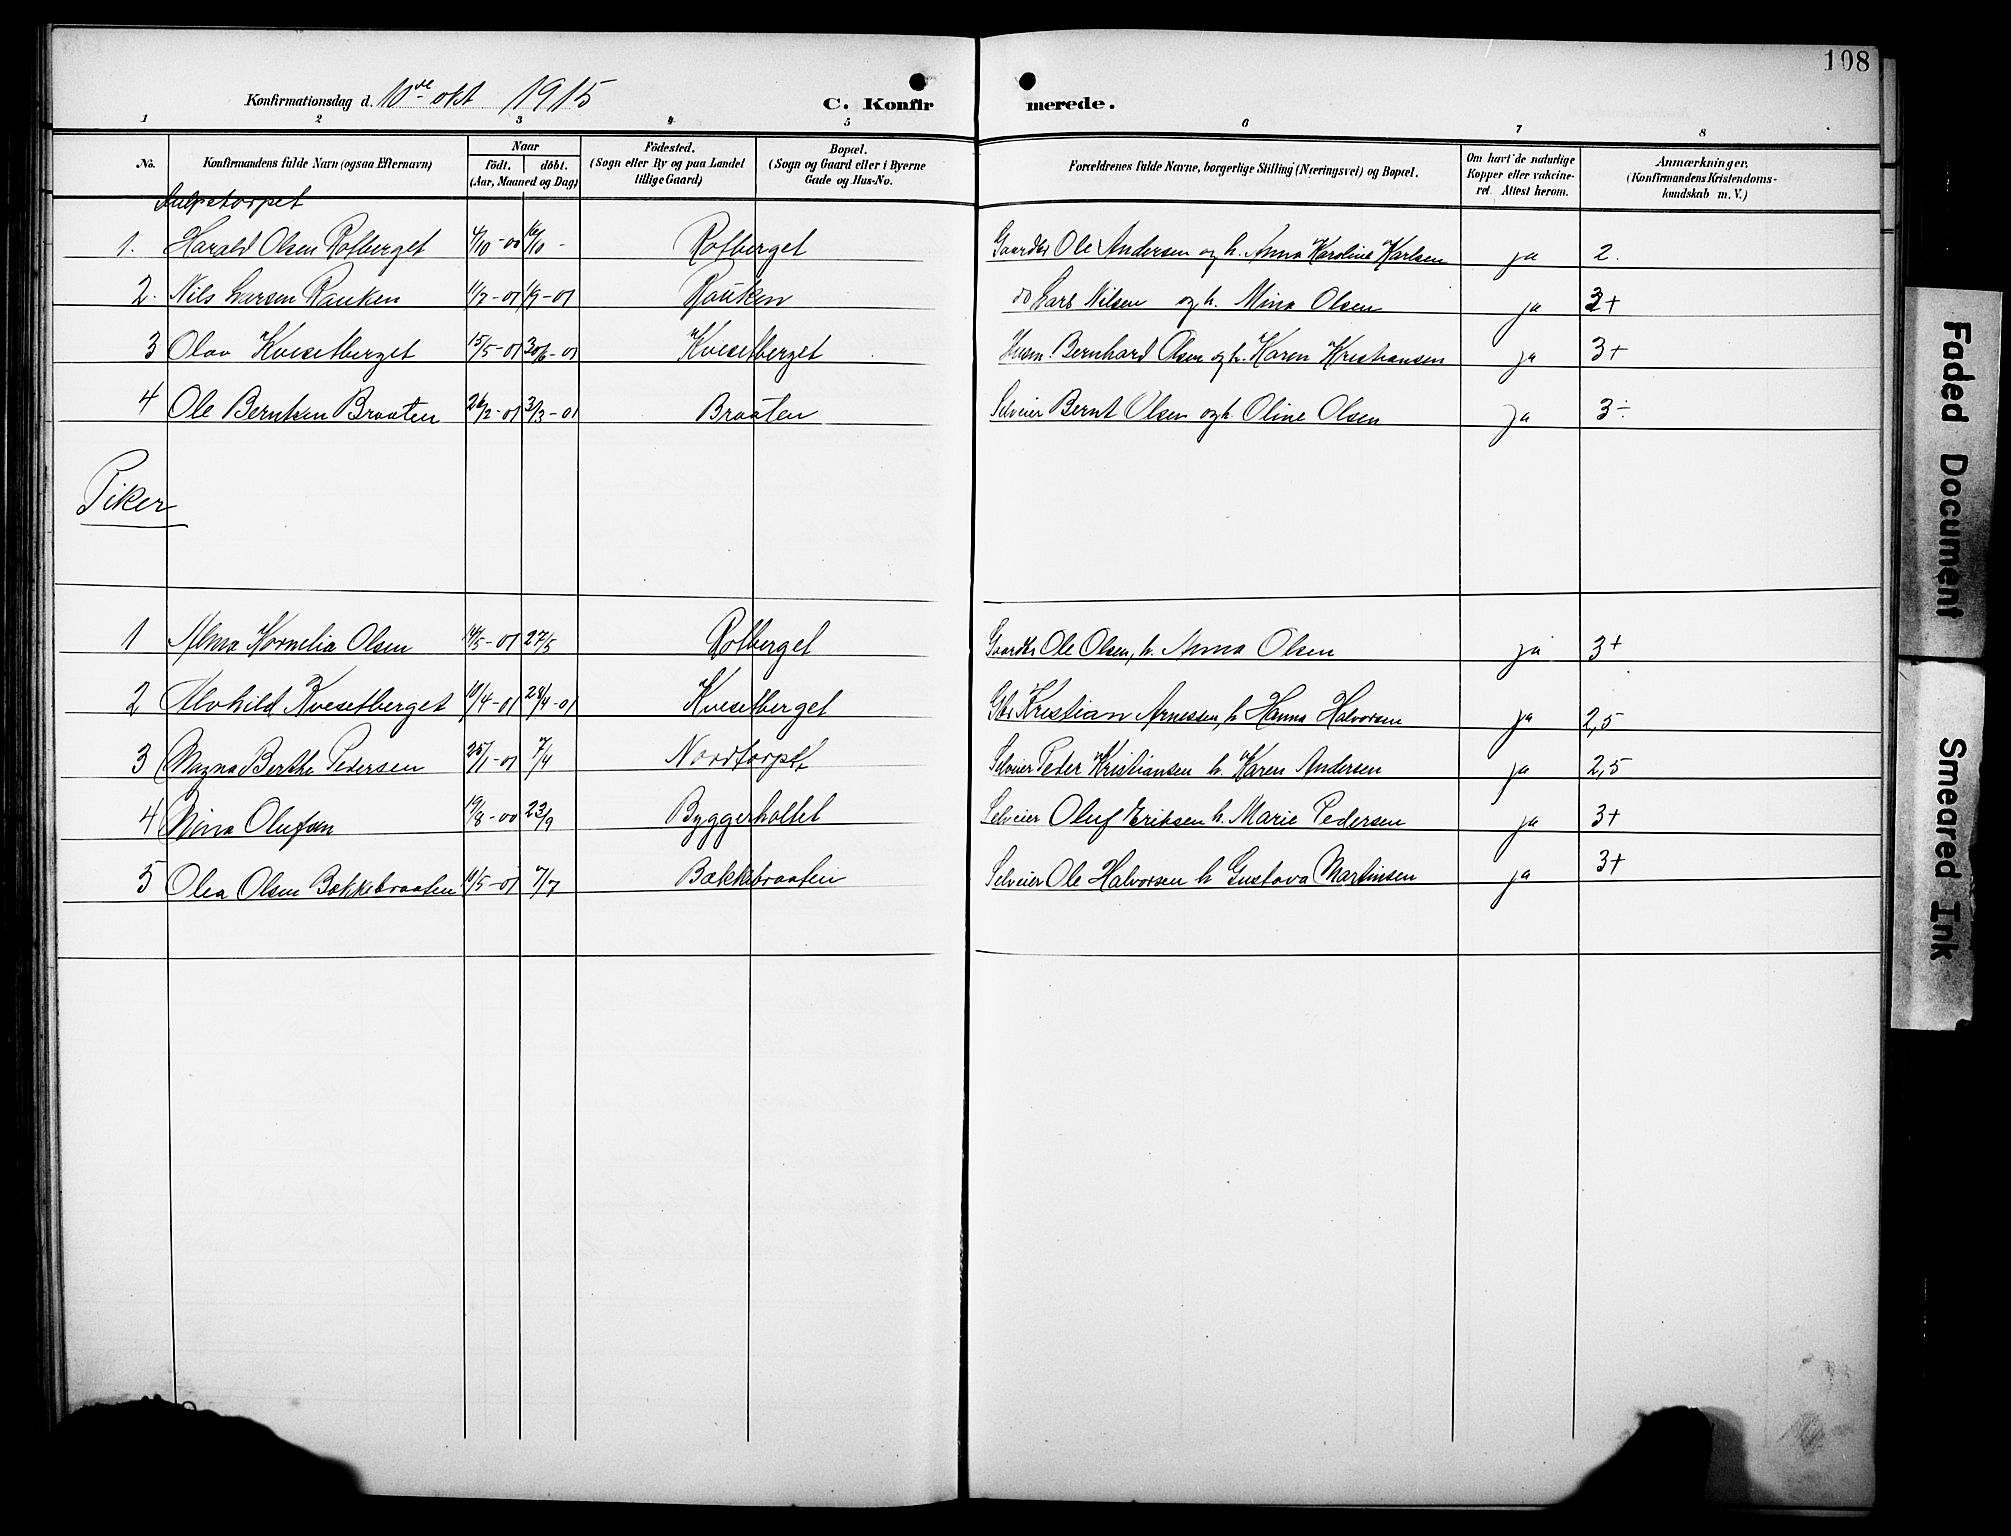 108
Konfirmationsdag d. 10de okt 1915 C. Konfir merede.
1 2 3 4 5 6 7 8
No. Konfirmandens fulde Navn (ogsaa Efternavn) Naar født. døbt. (Aar, Maaned og Dag) Fødested. (Sogn eller By og paa Landet tillige Gaard) Bopæl. (Sogn og Gaard eller i Byerne Gade og Hus-No. Forældrenes fulde Navne, borgerlige Stilling (Næringsvei) og Bopæl. Om havt de naturlige Kopper eller vakcineret. Attest herom. Anmærkninger. (Konfirmandens Kristendomskundskab m. V.)
1. Harald Olsen Rotberget 4/10-00 16/10 - Rotberget Gaardbr Ole Andersen og h. Anna Karoline Karlsen ja 2.
2. Nils Larsen Rauken 11/7-01 1/9-01 Rauken do Lars Nilsen og h. Mina Olsen ja 3+
3 Olav Kvesetberget 15/5-01 30/6-01 Kvesetberget Husm. Bernhard Olsen og h. Karen Kristiansen ja 3+
4 Ole Berntsen Braaten 26/2-01 3/3-01 Braaten Selveier Bernt Olsen og h. Oline Olsen ja 3÷
Piker
1 Alma Kornelia Olsen 14/5-01 27/5 Rotberget Gaardbr Ole Olsen, h. Anna Olsen ja 3+
2 Alvhild Kvesetberget 10/4-01 28/4-01 Kvesetberget Gbr Kristian Arnesen, h Hanna Halvorsen ja 2,5
3 Magna Berthe Pedersen 25/1-01 7/4 Nordtorpet Selveier Peder Kristiansen h. Karen Andersen ja 2,5
4 Nina Olufsen 19/8-00 23/9 Byggerholtet Selveier Oluf Eriksen h. Marie Pedersen ja 3+
5 Olea Olsen Bækkebraaten 10/5-01 7/7 Bækkebraaten Selveier Ole Halvorsen h Gustava Martinsen ja 3+
Faded Document
Smeared Ink